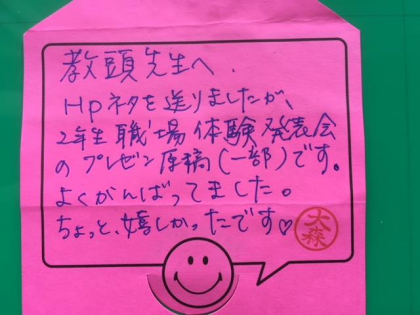 教頭先生へ、
Hpネタを送りましたが、
2年生職場体験発表会
のプレゼン原稿(一部)です。
よくがんばってました。
ちょっと、嬉しかったです♡
大森